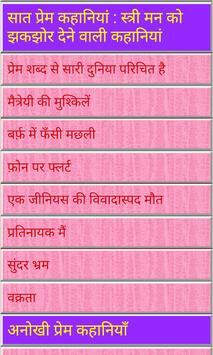 सात प्रेम कहानियां : स्त्री मन को
झकझोर देने वाली कहानियां
प्रेम शब्द से सारी दुनिया परिचित है
मैत्रेयी की मुश्किलें
बर्फ़ में फँसी मछली
फ़ोन पर फ्लर्ट
एक जीनियस की विवादास्पद मौत
प्रतिनायक मैं
सुंदर भ्रम
वक्रता
अनोखी प्रेम कहानियाँ